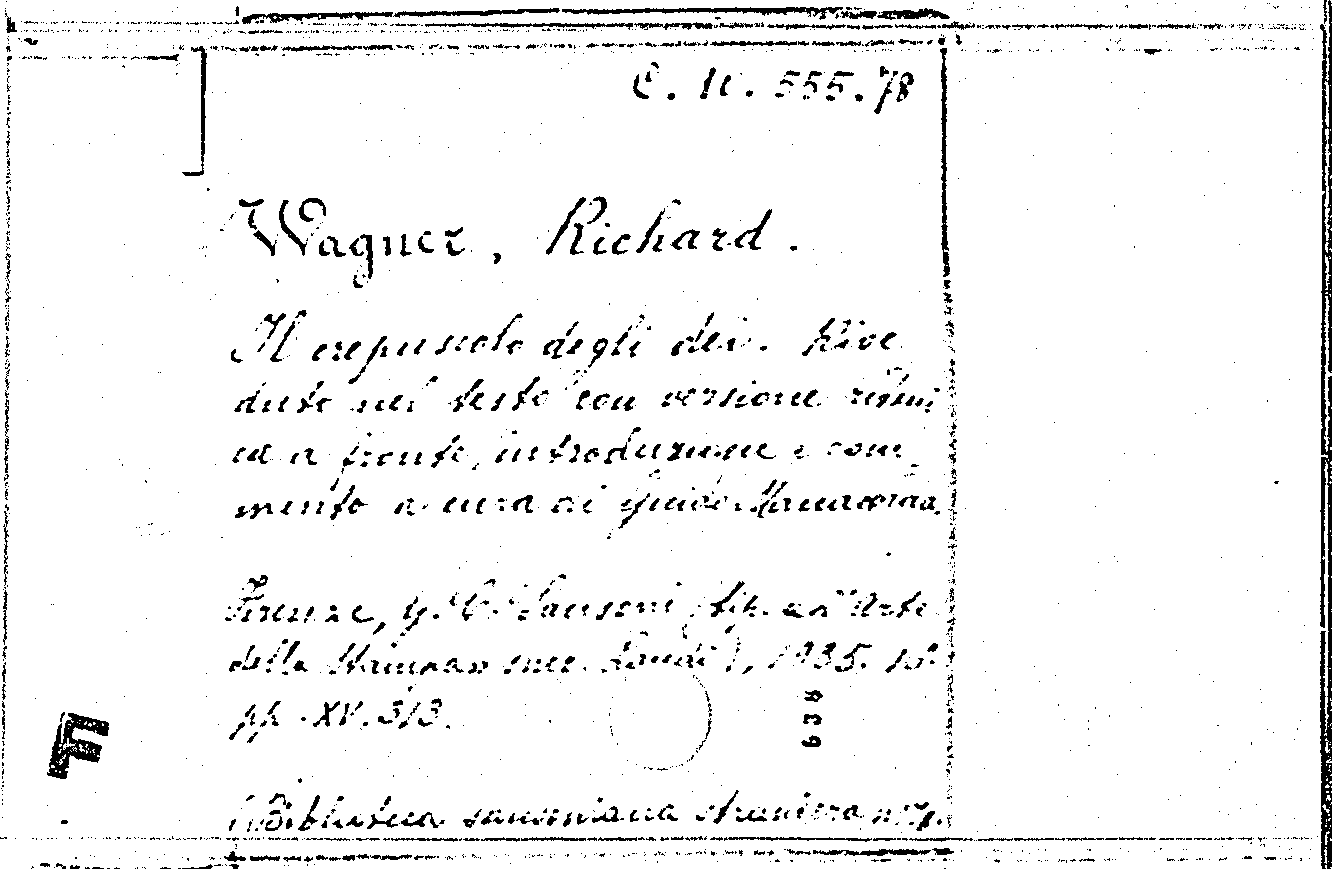 C. N. 555.78
Wagner, Richard.
Il crepuscolo degli dei. Rive
duto nel testo con versione ritmi
ca a fronte, introduzione e com
mento a cura di Guido Manacorda.
Firenze, G. C. Sansoni (tip. "L'Arte
della Stampa" succ. Landi), 1935. 16°
pp. XV. 313.
638
F
(Biblioteca sansoniana straniera n°